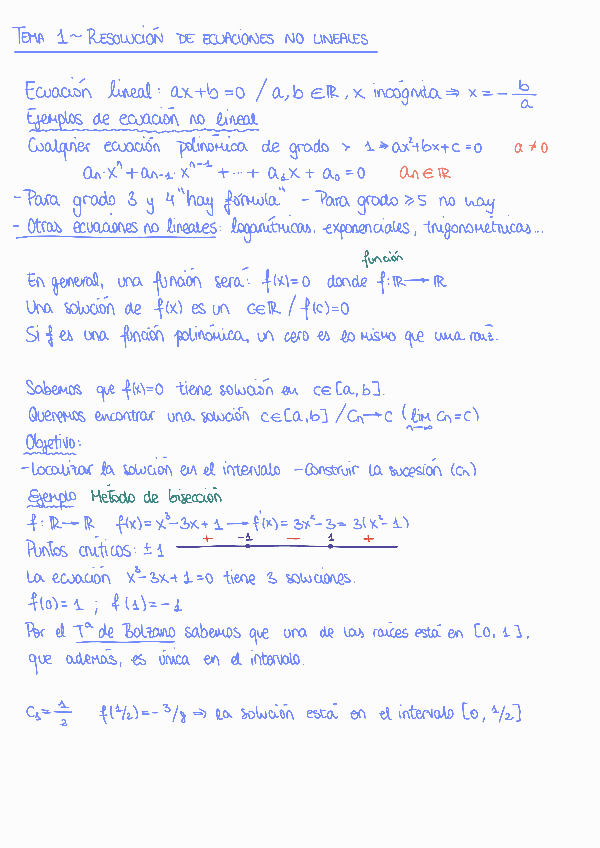 TEMA 1 ~ RESOLUCIÓN DE ECUACIONES NO LINEALES
Ecuación lineal: ax+b=0 / a,b ∈ ℝ, x incógnita ⇒ x = - b/a
Ejemplos de ecuación no lineal
Cualquier ecuación polinómica de grado > 1 → ax²+bx+c=0 a≠0
aₙ·xⁿ+aₙ₋₁·xⁿ⁻¹+···+a₁x+a₀=0 aₙ∈ℝ
- Para grado 3 y 4 "hay fórmula" - Para grado ≥5 no hay
- Otras ecuaciones no lineales: logarítmicas, exponenciales, trigonométricas...
función
En general, una función será: f(x)=0 donde f:ℝ→ℝ
Una solución de f(x) es un c∈ℝ / f(c)=0
Si f es una función polinómica, un cero es lo mismo que una raíz.
Sabemos que f(x)=0 tiene solución en c∈[a,b].
Queremos encontrar una solución c∈[a,b] / Cn→c (lim Cn=c)
n→∞
Objetivo:
-Localizar la solución en el intervalo -Construir la sucesión (Cn)
Ejemplo Método de bisección
f:ℝ→ℝ f(x)=x³-3x+1 → f'(x)=3x²-3=3(x²-1)
Puntos críticos: ±1 + -1 - 1 +
La ecuación x³-3x+1=0 tiene 3 soluciones.
f(0)=1 ; f(1)=-1
Por el Tª de Bolzano sabemos que una de las raíces está en [0,1],
que además, es única en el intervalo.
C₁=1/2 f(1/2)=-3/8 ⇒ la solución está en el intervalo [0,1/2]